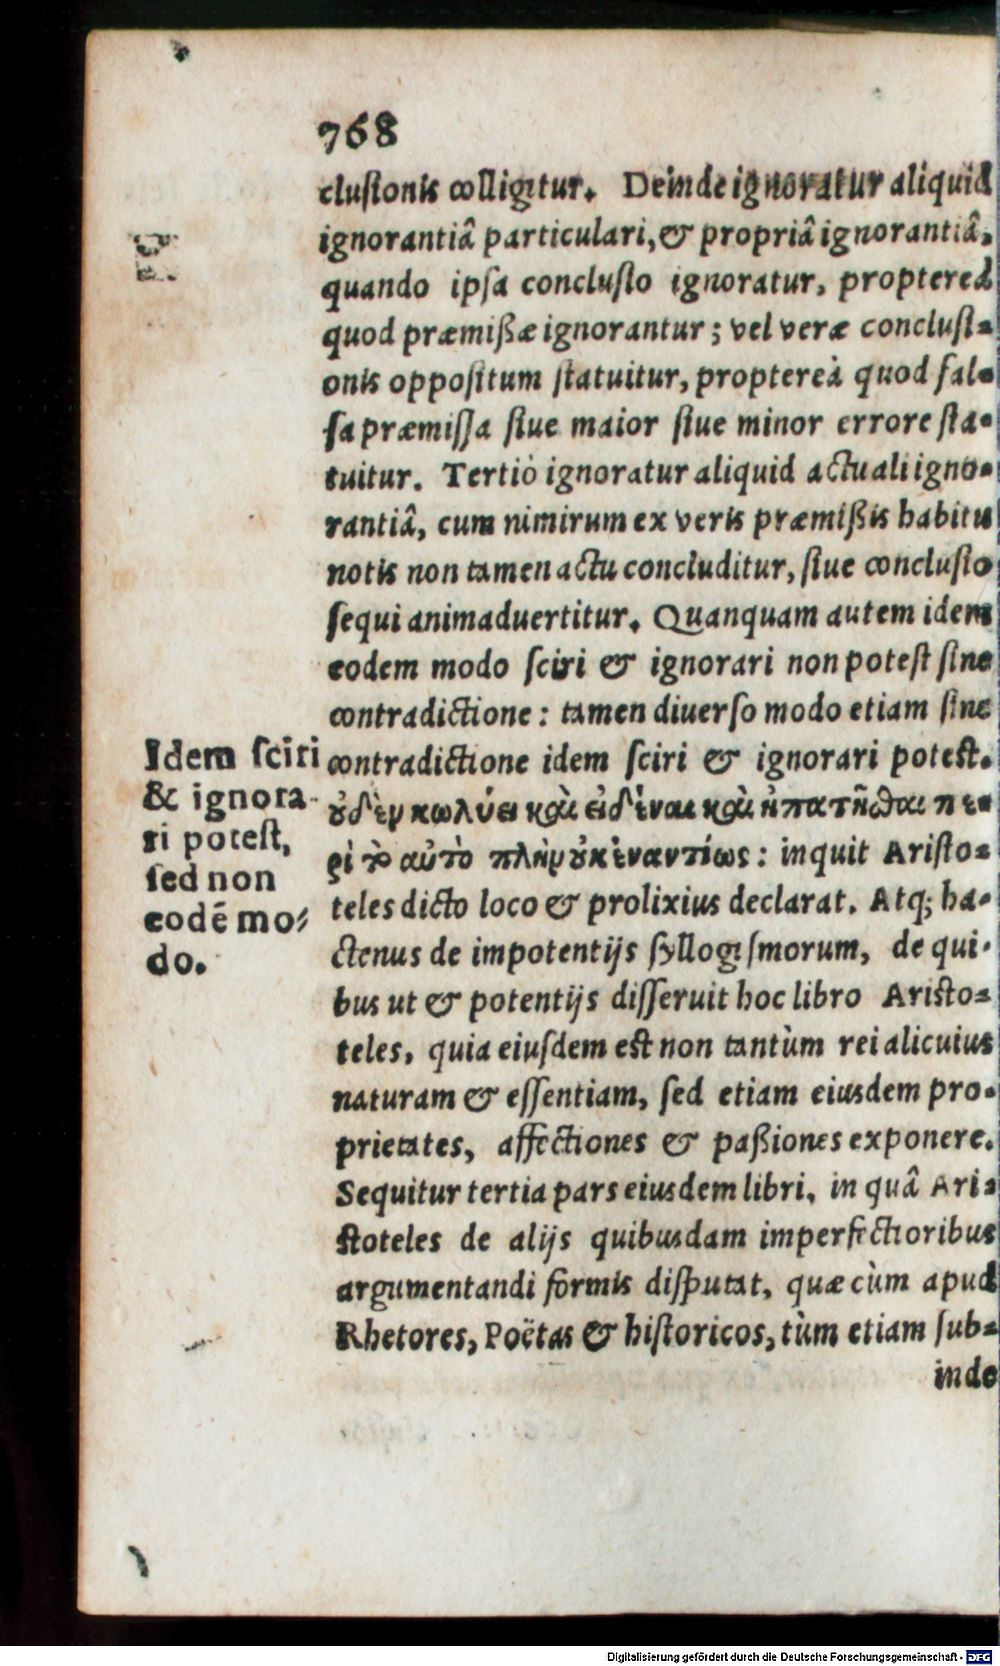 768
clusionis colligitur. Deinde ignoratur aliquid
ignorantiâ particulari, & propriâ ignorantiâ,
quando ipsa conclusio ignoratur, propterea
quod præmißæ ignorantur; vel veræ conclusi-
onis oppositum statuitur, propterea quod fal-
sa præmissa siue maior siue minor errore sta-
tuitur. Tertiò ignoratur aliquid actuali igno-
rantiâ, cum nimirum ex veris præmißis habitu
notis non tamen actu concluditur, siue conclusio
sequi animaduertitur. Quanquam autem idem
eodem modo sciri & ignorari non potest sine
contradictione: tamen diuerso modo etiam sine
contradictione idem sciri & ignorari potest.
οὐδὲν κωλύει καὶ εἰδέναι καὶ ἠπατῆσθαι πε-
ρὶ τὸ αὐτὸ πλὴν οὐκ ἐναντίως: inquit Aristo-
teles dicto loco & prolixius declarat. Atq; ha-
ctenus de impotentijs syllogismorum, de qui-
bus ut & potentijs disseruit hoc libro Aristo-
teles, quia eiusdem est non tantùm rei alicuius
naturam & essentiam, sed etiam eiusdem pro-
prietates, affectiones & paßiones exponere.
Sequitur tertia pars eiusdem libri, in quâ Ari-
stoteles de alijs quibusdam imperfectioribus
argumentandi formis disputat, quæ cùm apud
Rhetores, Poëtas & historicos, tùm etiam sub-
inde
Idem sciri
& ignora-
ri potest,
sed non
eodē mo-
do.
Digitalisierung gefördert durch die Deutsche Forschungsgemeinschaft - DFG